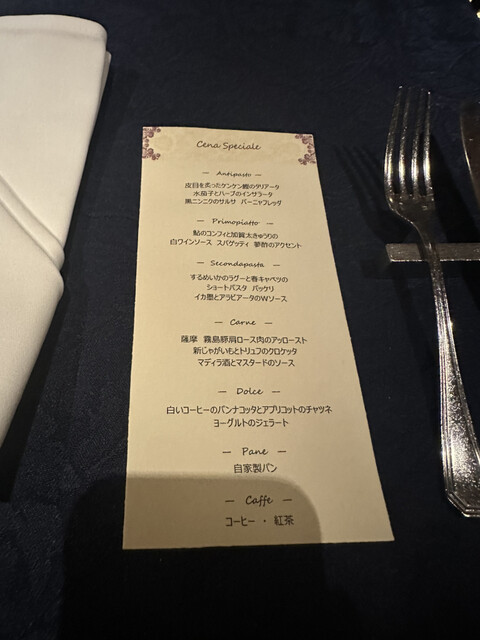 Cena Speciale
— Antipasto —
皮目を炙ったケンケン鰹のタリアータ
水茄子とハーブのインサラータ
黒ニンニクのサルサ バーニャフレッダ
— Primopiatto —
鮎のコンフィと加賀太きゅうりの
白ワインソース スパゲッティ 蓼酢のアクセント
— Secondapasta —
するめいかのラグーと春キャベツの
ショートパスタ パッケリ
イカ墨とアラビアータのWソース
— Carne —
薩摩 霧島豚肩ロース肉のアッロースト
新じゃがいもとトリュフのクロケッタ
マディラ酒とマスタードのソース
— Dolce —
白いコーヒーのパンナコッタとアプリコットのチャツネ
ヨーグルトのジェラート
— Pane —
自家製パン
— Caffe —
コーヒー ・ 紅茶